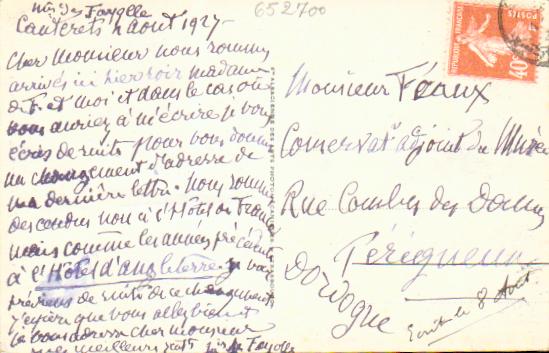 652700
Mis de Fayolle
Cauterets août 1927
Cher Monsieur nous sommes
arrivés ici hier soir Madame
de F. et moi et dans le cas où
vous auriez à m'écrire je vous
écris de suite pour vous donner
un changement d'adresse de
ma dernière lettre. Nous sommes
descendus non à l'Hôtel de France
mais comme les années précédentes
à l'Hôtel d'Angleterre. Je vous
préviens de suite de ce changement
J'espère que vous allez bien et
je vous adresse cher monsieur
mes meilleurs
de Fayolle
REPUBLIQUE FRANCAISE
40c
Monsieur Féaux
Conservat. adjoint du Musée
Rue Combes des Dames
Périgueux
Dordogne
Ecrit le 8 Août